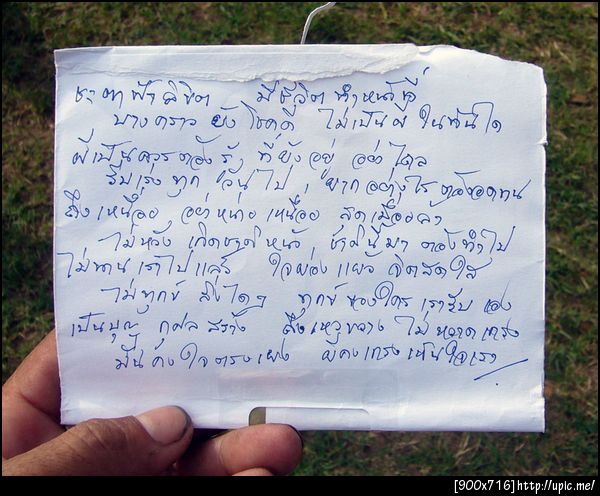 ชะตาฟ้าลิขิต มีชีวิตทำหน้าที่
บางคราวยังโชคดี ไม่เป็นผีในทันใด
ผีเป็นควรต้องรู้ ที่ยังอยู่อย่าไถล
รีบเร่งทุกวันไป, ยากอย่างไรต้องอดทน
ถึงเหนื่อยอย่าหน่ายเหนื่อย
ไม่หวังเกิดชาติหน้า, ชาตินี้มาต้องทำไป
ไม่นานเราไปแล้ว ใจผ่องแผ้วจิตสดใส
ไม่ทุกข์สิ่งใดๆ ทุกข์ของใครเรารับเอง
เป็นบุญกุศลสร้าง ถึงเหวขวางไม่หวาดเกรง
มั่นคงใจตรงเผง ผีคงเกรงเห็นใจเรา
[900x716]http://upic.me/